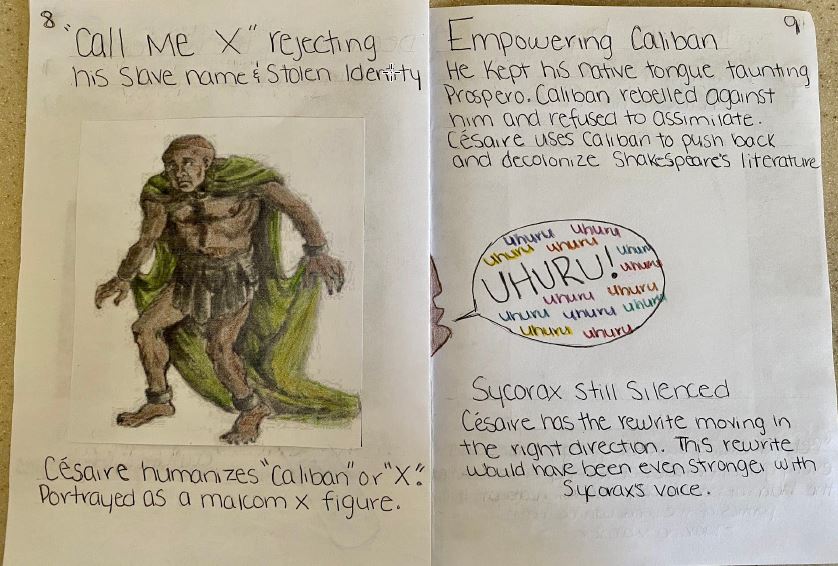 8
"Call Me X" rejecting
his Slave name & Stolen Identity
Césaire humanizes "Caliban" or "X".
Portrayed as a malcom x figure.
9
Empowering Caliban
He Kept his native tongue taunting
Prospero. Caliban rebelled against
him and refused to assimilate.
Césaire uses Caliban to push back
and decolonize Shakespeare's literature
uhuru uhuru
uhuru uhuru uhuru
UHURU! uhuru
uhuru uhuru
uhuru uhuru uhuru
uhuru uhuru
Sycorax Still Silenced
Césaire has the rewrite moving in
the right direction. This rewrite
would have been even stronger with
Sycorax's voice.